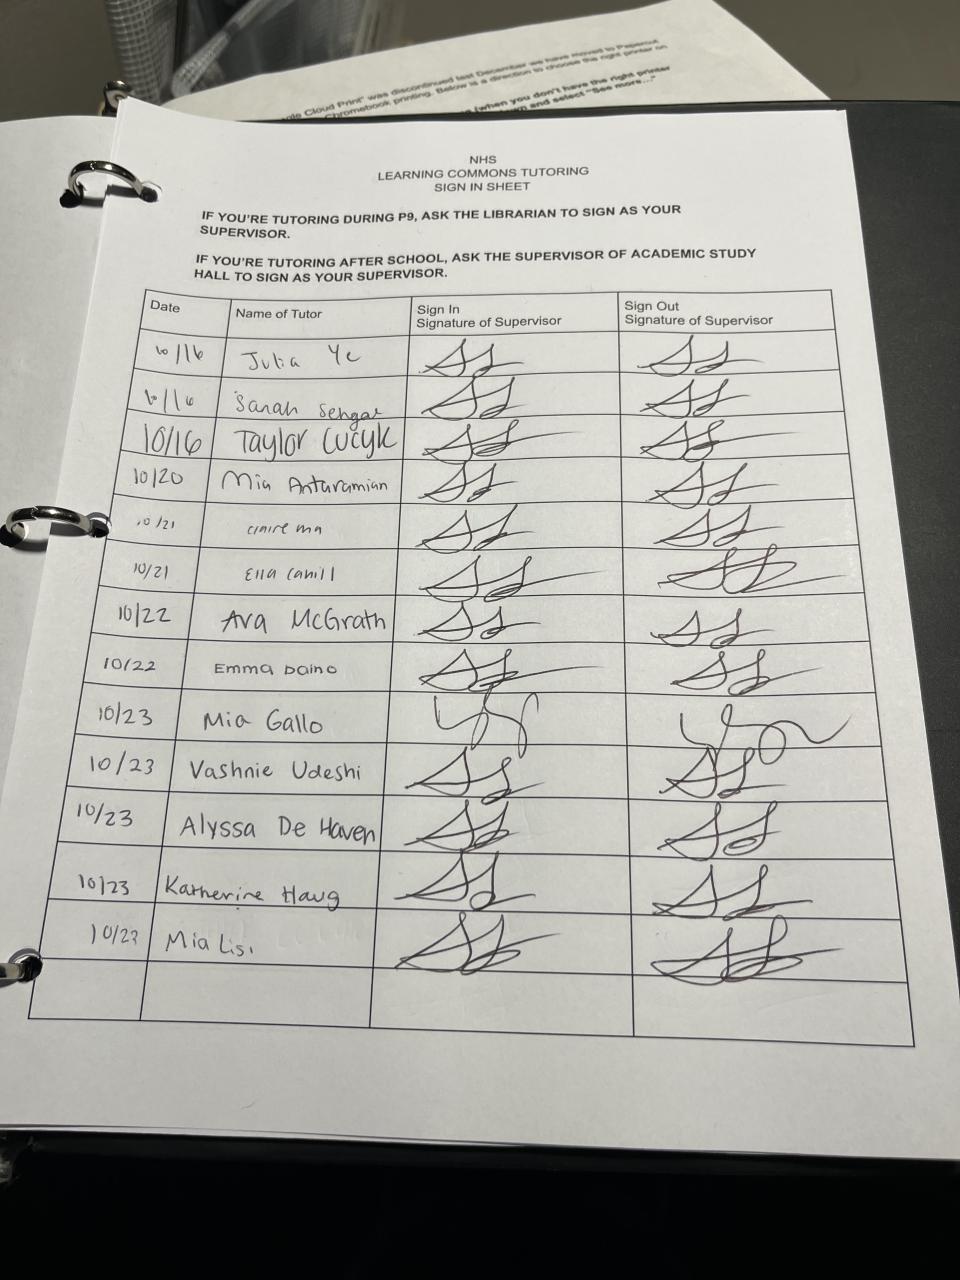 gle Cloud Print" was discontinued last December we have moved to Papercut
Chromebook printing. Below is a direction to choose the right printer on
(when you don't have the right printer
and select "See more..."
NHS
LEARNING COMMONS TUTORING
SIGN IN SHEET
IF YOU'RE TUTORING DURING P9, ASK THE LIBRARIAN TO SIGN AS YOUR
SUPERVISOR.
IF YOU'RE TUTORING AFTER SCHOOL, ASK THE SUPERVISOR OF ACADEMIC STUDY
HALL TO SIGN AS YOUR SUPERVISOR.
Date Name of Tutor Sign In Sign Out
Signature of Supervisor Signature of Supervisor
10/16 Julia Ye
10/16 Sarah Sehgal
10/16 Taylor Cucyk
10/20 Mia Antaramian
10/21 Claire ma
10/21 Ella Cahill
10/22 Ava McGrath
10/22 Emma Daino
10/23 Mia Gallo
10/23 Vashnie Udeshi
10/23 Alyssa De Haven
10/23 Katherine Haug
10/23 Mia Lisi